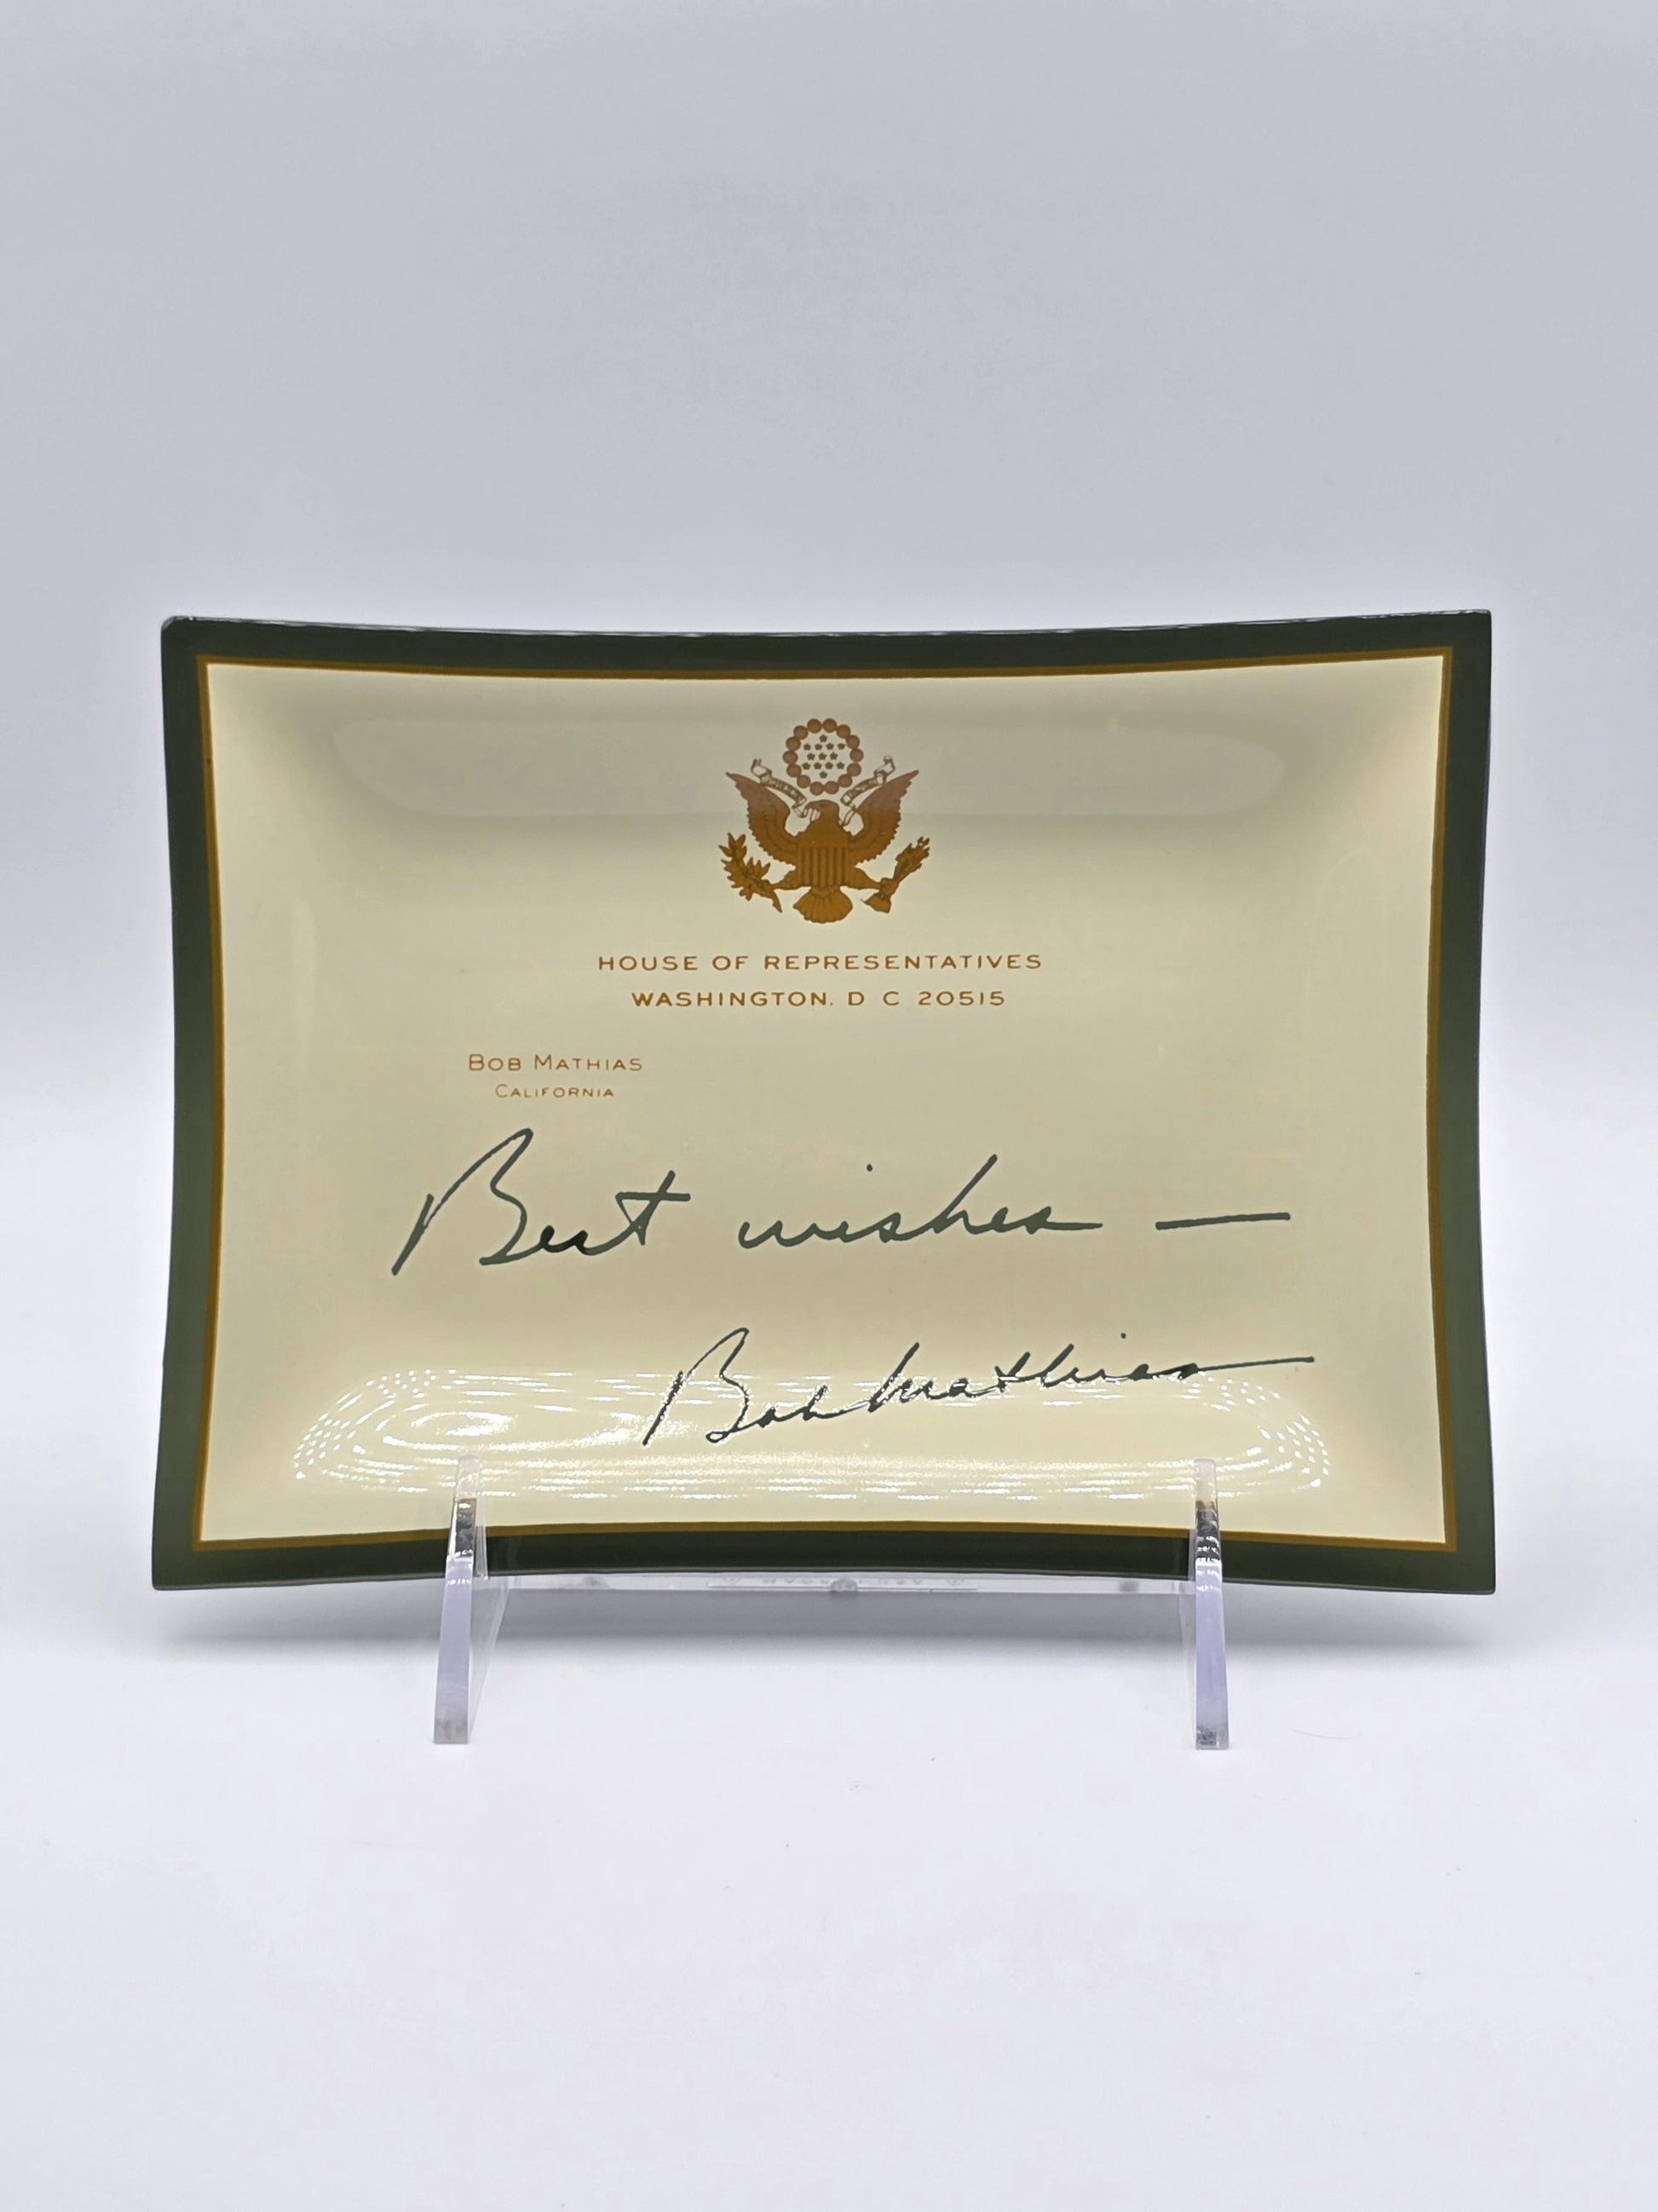 HOUSE OF REPRESENTATIVES
WASHINGTON, D C 20515
BOB MATHIAS
CALIFORNIA
Best wishes —
Bob Mathias